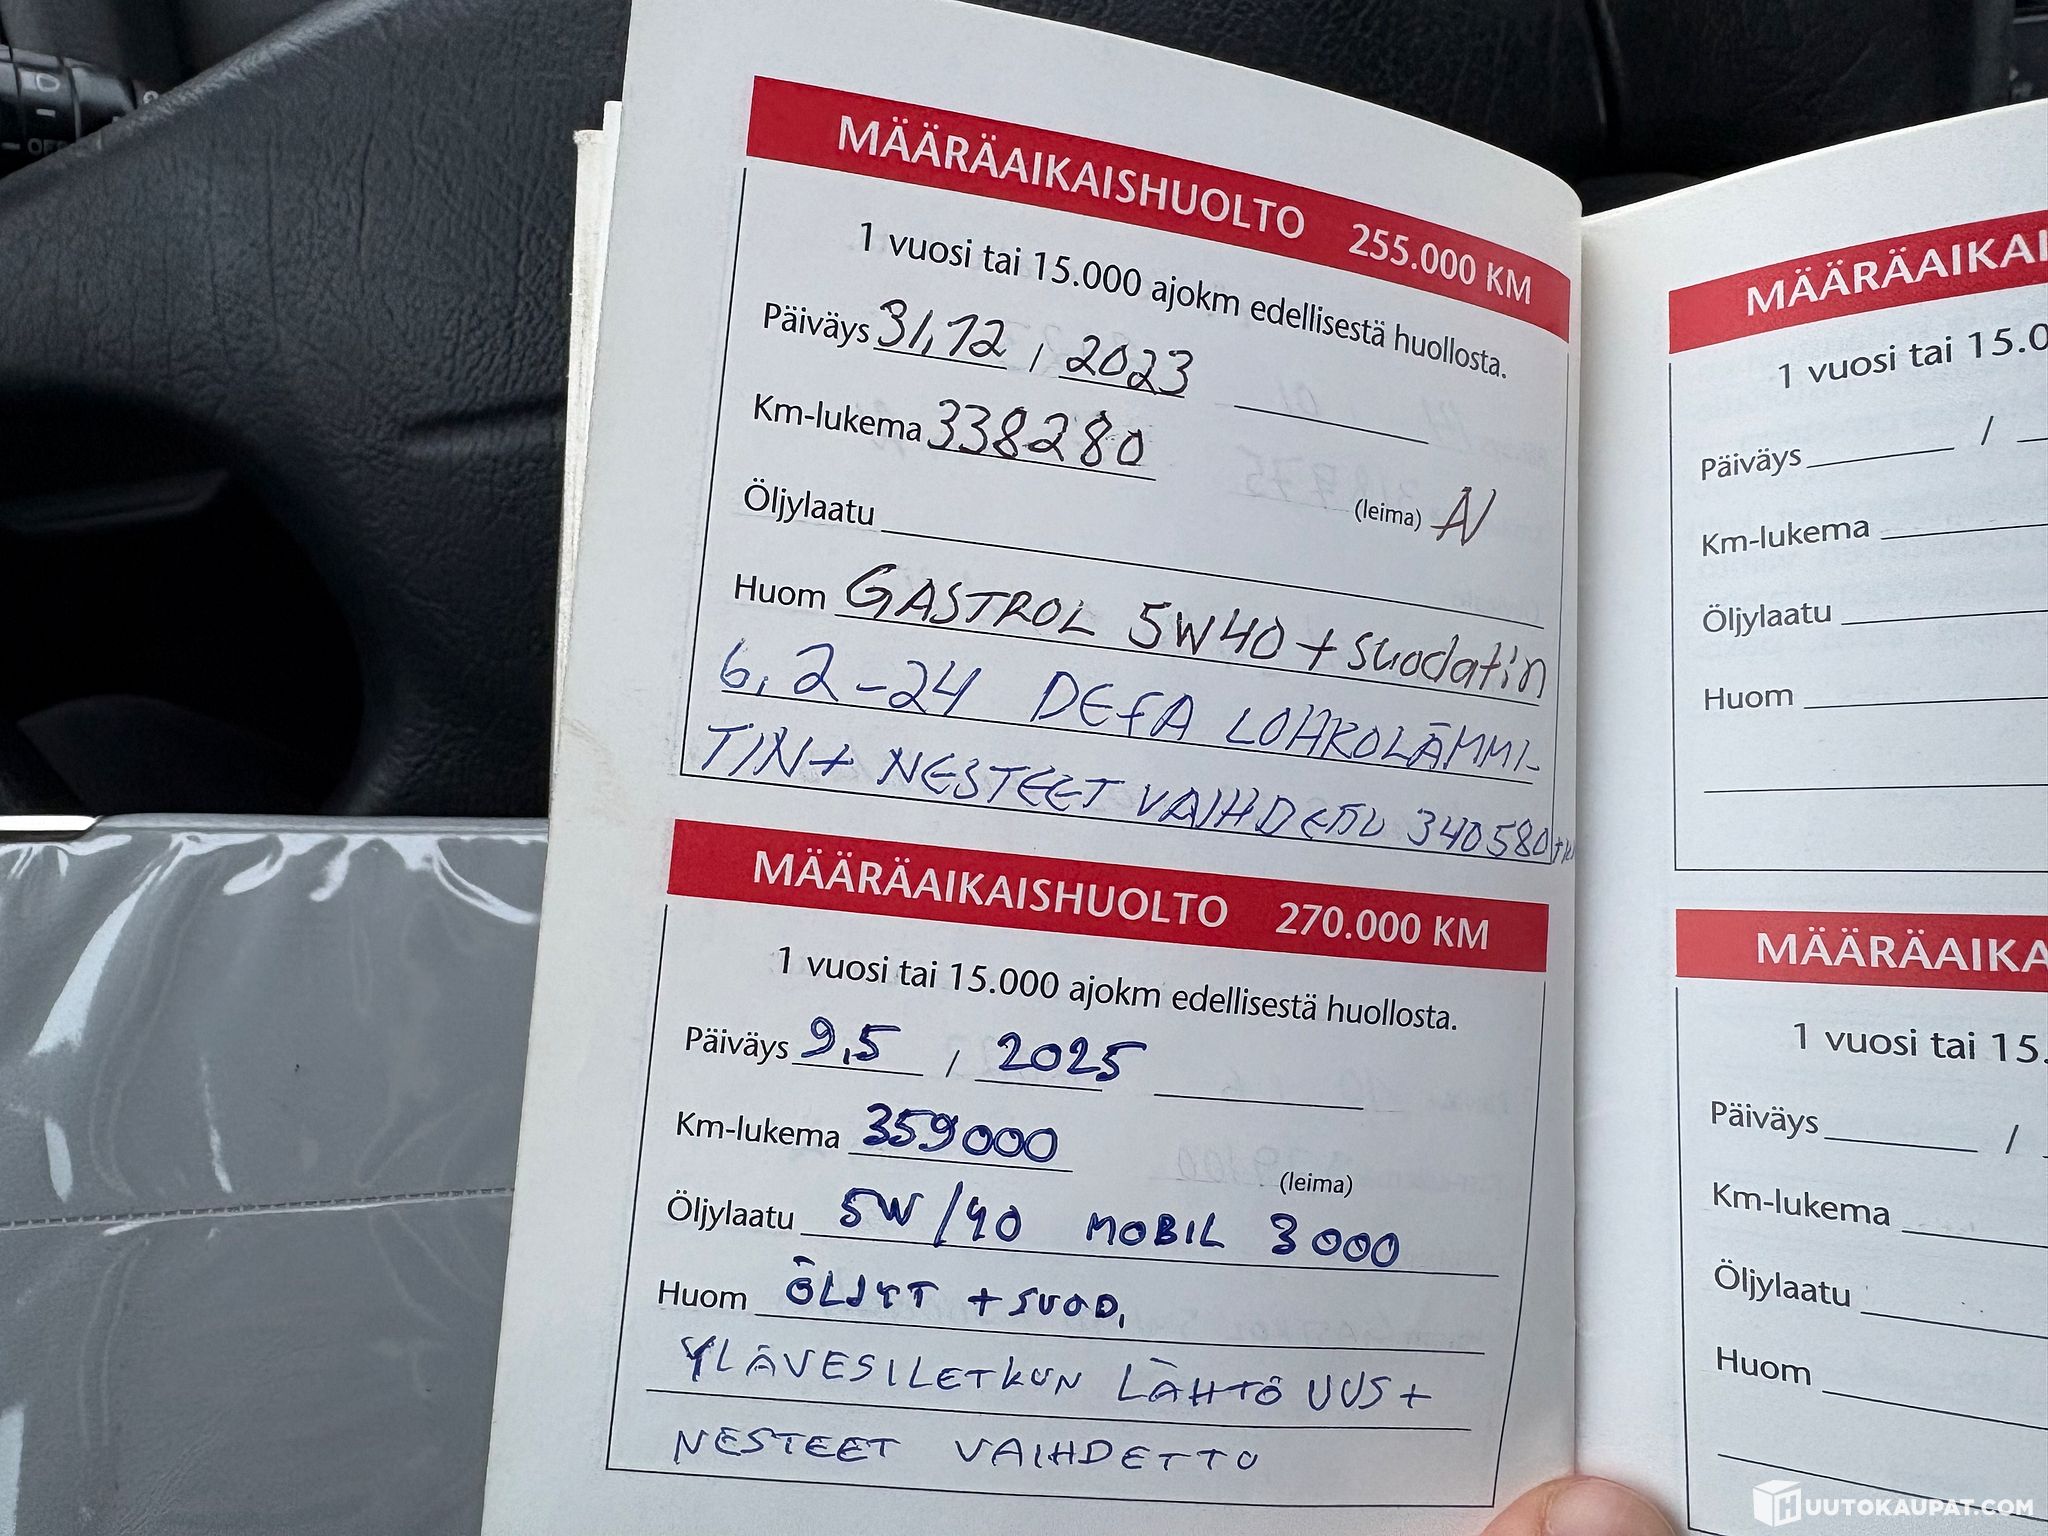 OFF
MÄÄRÄAIKAISHUOLTO 255.000 KM
1 vuosi tai 15.000 ajokm edellisestä huollosta.
Päiväys 31,12 / 2023
Km-lukema 338280
Öljylaatu
(leima) N
Huom GASTROL 5W40 + suodatin
6,2-24 DEFA LOHKOLÄMMI-
TIN + NESTEET VAIHDETTU 340580
MÄÄRÄAIKAISHUOLTO 270.000 KM
1 vuosi tai 15.000 ajokm edellisestä huollosta.
Päiväys 9,5 / 2025
Km-lukema 359000
(leima)
Öljylaatu 5W/40 MOBIL 3000
Huom ÖLJYT + SUOD,
YLÄVESILETKUN LÄHTÖ UUS +
NESTEET VAIHDETTO
MÄÄRÄAIKAI
1 vuosi tai 15.0
Päiväys /
Km-lukema
Öljylaatu
Huom
MÄÄRÄAIKA
1 vuosi tai 15.
Päiväys /
Km-lukema
Öljylaatu
Huom
HUUTOKAUPAT.COM